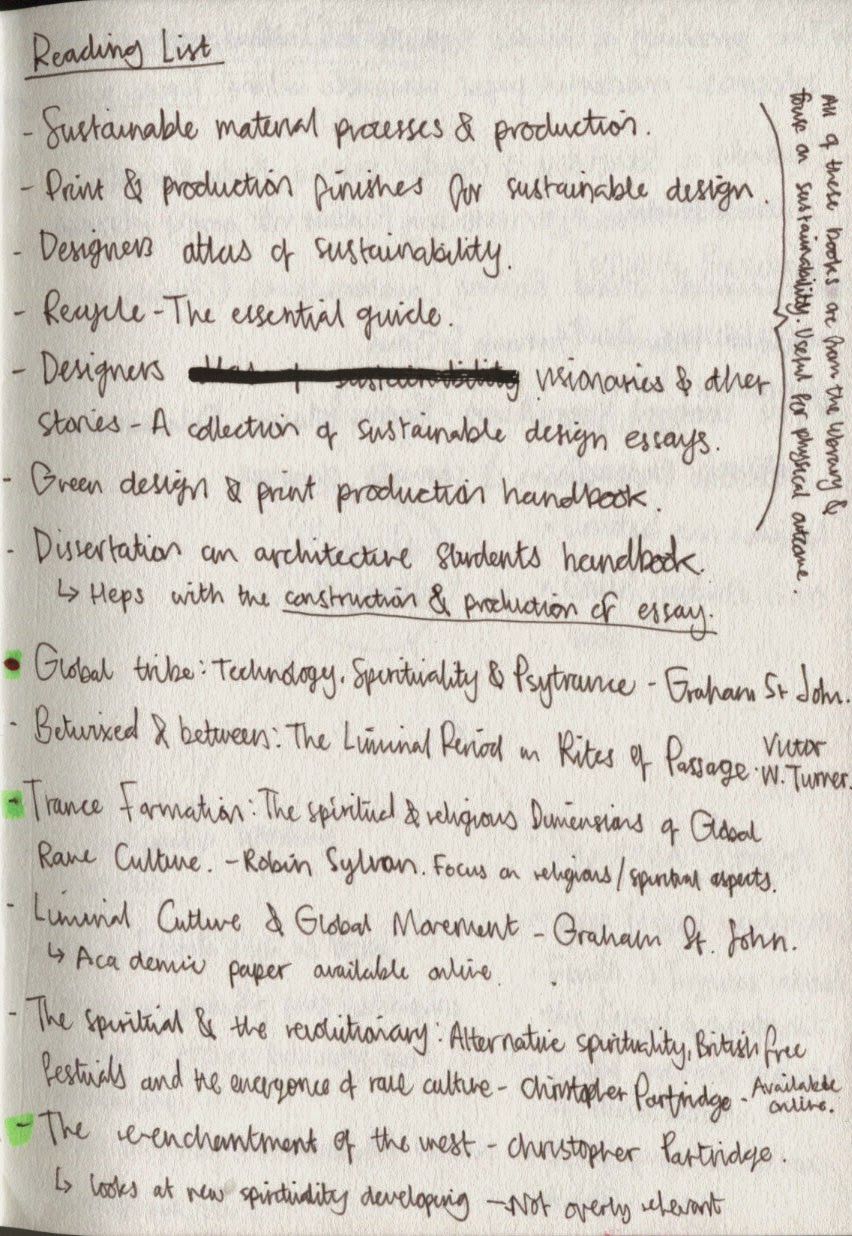 Reading List
- Sustainable material processes & production.
- Print & production finishes for sustainable design.
- Designers atlas of sustainability.
- Recycle - The essential guide.
- Designers visionaries & other
stories - A collection of sustainable design essays.
- Green design & print production handbook.
- Dissertation an architecture students handbook.
↳ Heps with the construction & production of essay.
All of these books are from the library &
focus on sustainability. Useful for physical outcome
- Global tribe: Technology, Spirituality & Psytrance - Graham St John.
- Betwixed & between: The Liminal Period in Rites of Passage. Victor
W. Turner.
- Trance Formation: The spiritual & religious Dimensions of Global
Rave Culture. - Robin Sylvan. Focus on religious/spiritual aspects.
- Liminal Culture & Global Movement - Graham St. John.
↳ Academic paper available online.
- The spiritual & the revolutionary: Alternative spirituality, British free
festivals and the emergence of rave culture - Christopher Partridge - Available
online.
- The re-enchantment of the west - Christopher Partridge.
↳ looks at new spirituality developing - Not overly relevant